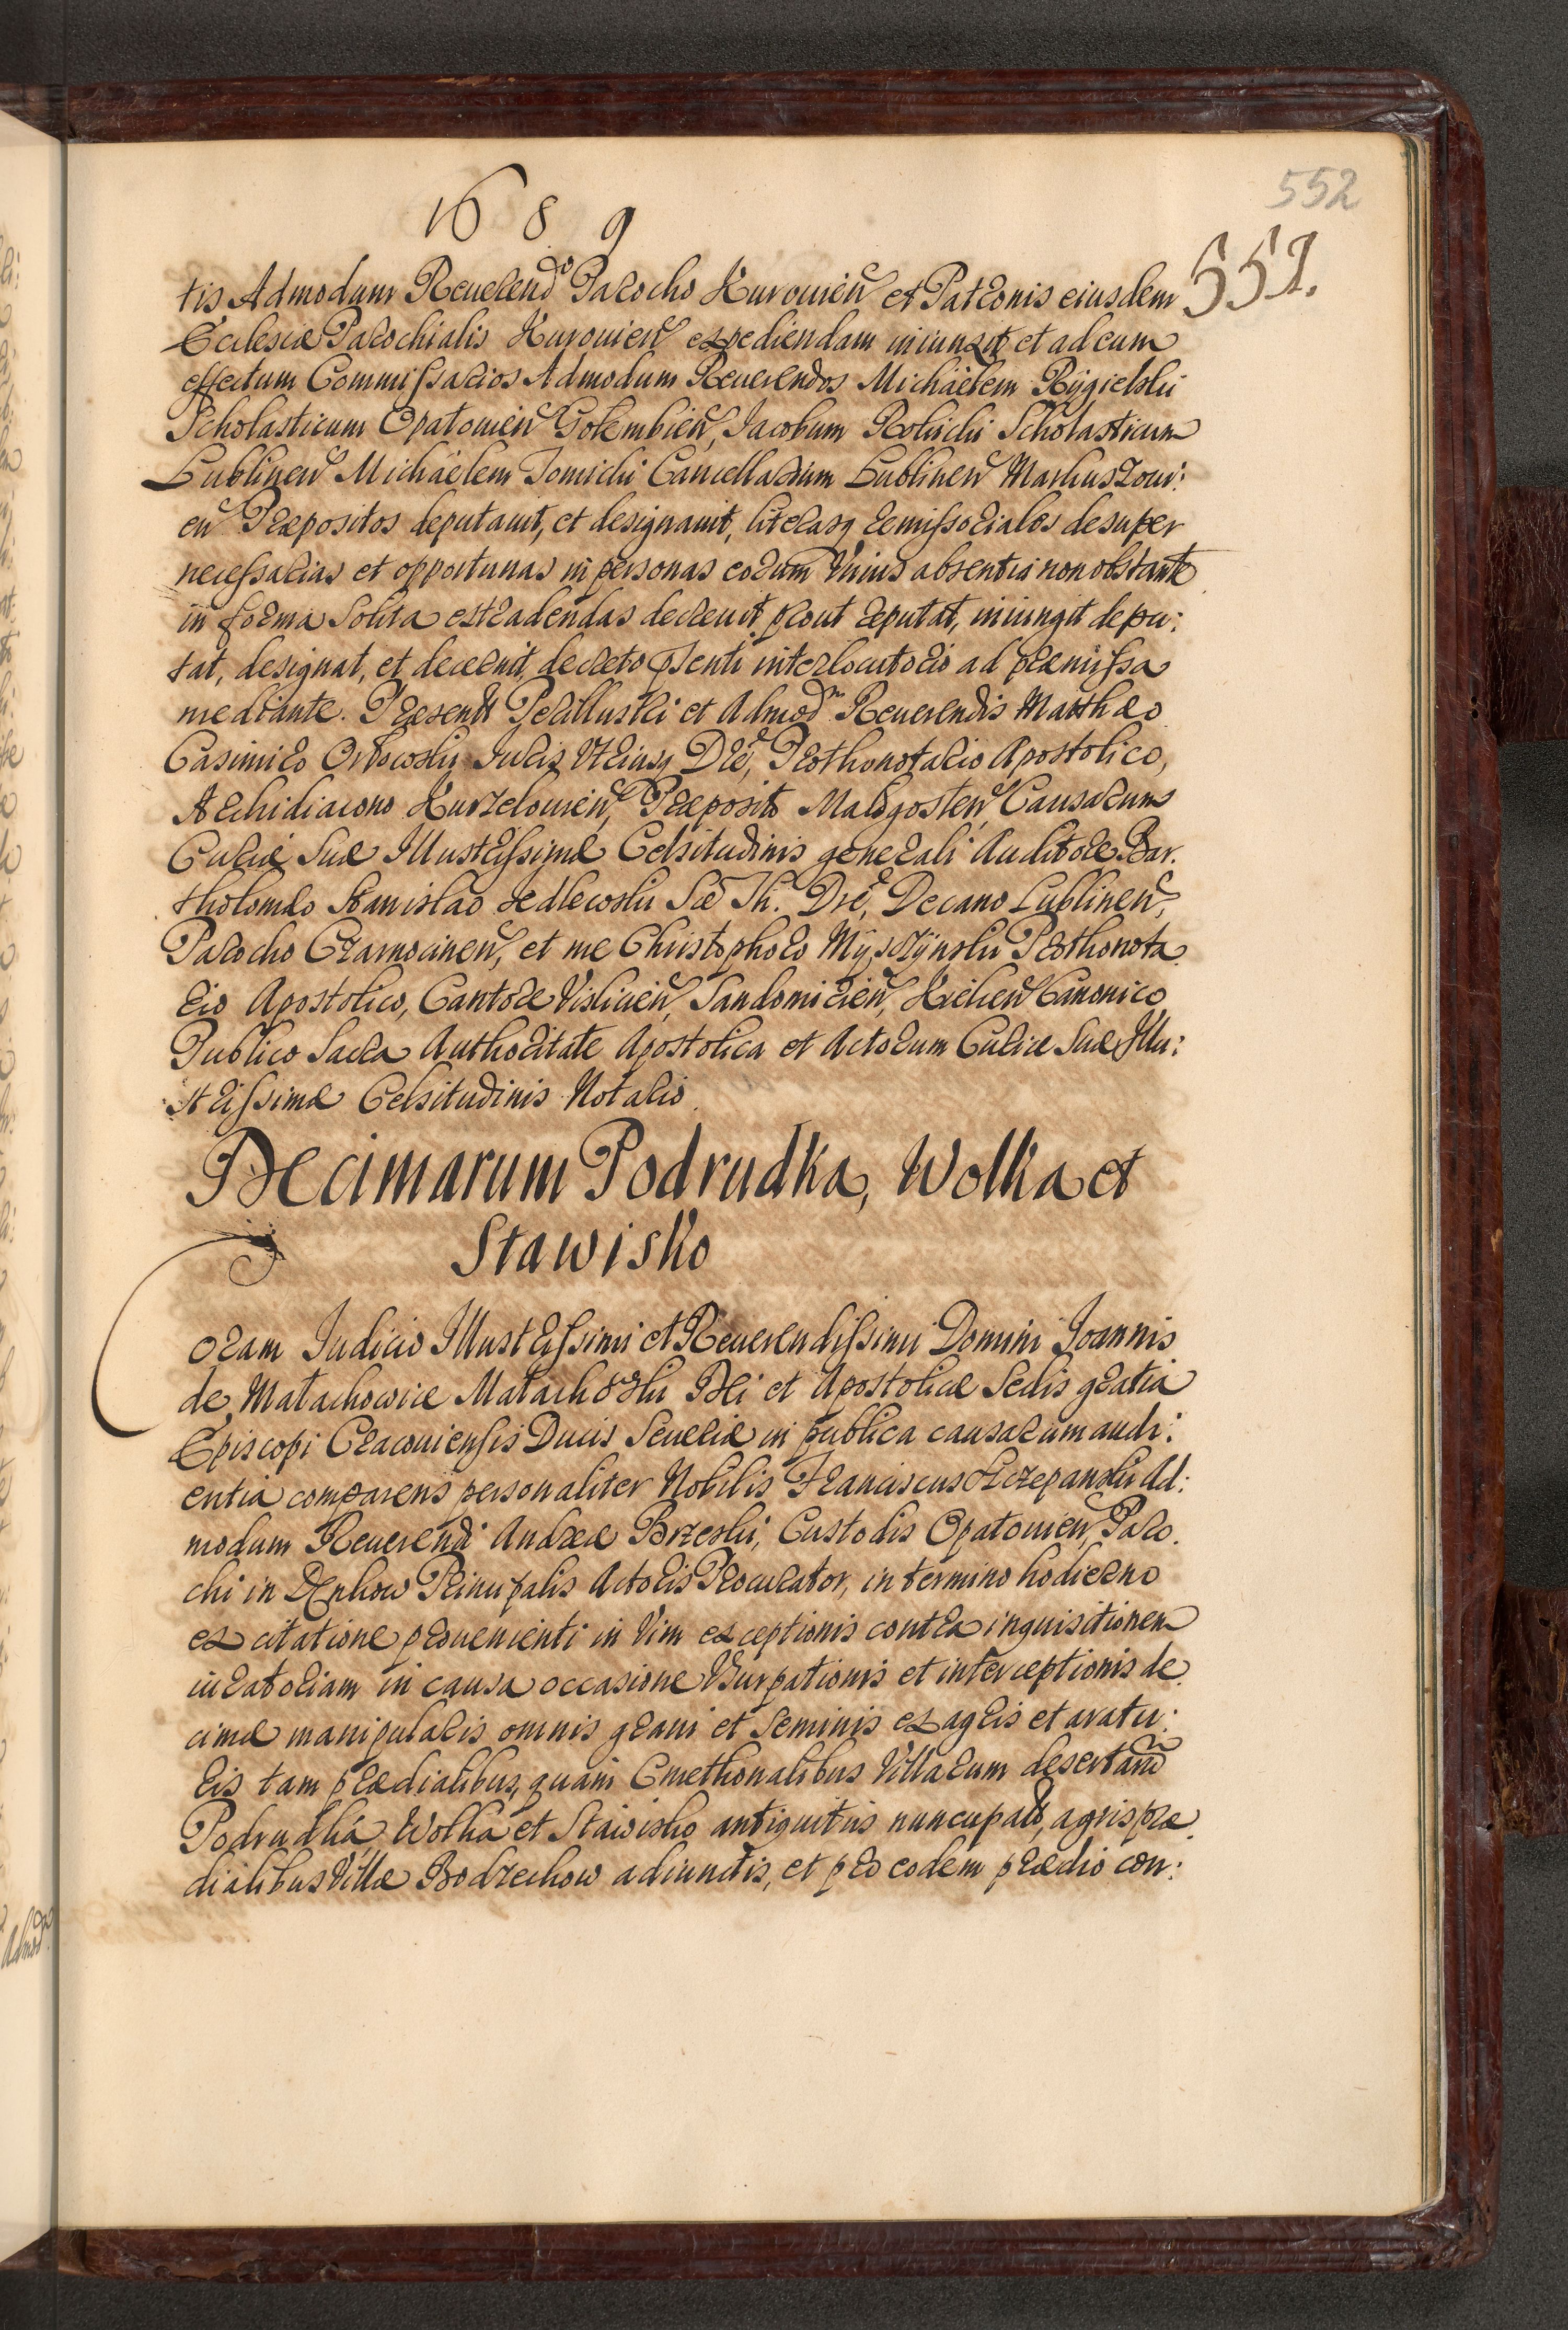 552
1689
551.
tis, Admodum Reuerendo Parocho Kurouien et Patronis eiusdem
Ecclesiæ Parochialis Kurouien expediendam iniunxit et ad eum
effectum Commissarios Admodum Reuerendos Michaëlem Rÿgielski
Scholasticum Opatouien Golembien, Jacobum Rokicki Scholasticum
Lublinen Michaëlem Tomicki Cancellarium Lublinen Markuszoui:
en Præpositos deputauit, et designauit, literasq remissoriales desuper
necessarias et opportunas in personas eorum Vnius absentia non obstante
in forma Solita extradendas decreuit prout reputat, iniungit depu:
tat, designat, et decernit, decreto psenti interlocutorio ad præmissa
mediante. Præsentt Perillustri et Admodm Reuerendis Matthæo
Casimiro Juris Vtriusq Dre, Prothonotario Apostolico,
Archidiacono Kurzelouien, Præposito Malogosten, Causarum
Curiæ Suæ Illustrissimæ Celsitudinis generali Auditore Bar.
tholomæo Stanislao Sedlecoski Sæ Th. Dre, Decano Lublinen,
Parocho Czarnocinen, et me Christophoro Mÿszÿnski Prothonota
rio Apostolico, Cantore Vislicien, Sandomirien, Kielcen Canonico
Publico Sacra Authoritate Apostolica et Actorum Curiæ Suæ Illu:
strissimæ Celsitudinis Notario
Decimarum Podrudka, Wolka et
Stawisko
Coram Judicio Illustrissimi et Reuerendissimi Domini Joannis
de Małachowice Małachowski Dei et Apostolicæ Sedis gratia
Episcopi Cracouiensis Ducis Seueriæ in publica causarum audi:
entia comparens personaliter Nobilis Franciscus Szczepanski Ad:
modum Reuerendi Andreæ Brzeski, Custodis Opatouien, Paro.
chi in Denkow Principalis Actoris Procurator, in termino hodierno
ex citatione proueniendi in Vim exceptionis contra inquisitionem
iuratoriam in causa occasione Vsurpationis et interceptionis de
cimæ manipularis omnis grani et Seminis ex agris et aratu:
ris tam prædialibus, quam Cmethonalibus Villarum desertarum
Podrudka, Wolka et Stawisko antiquitus nuncupat, agris præ
dialibus Villæ Bodzechow adiunctis, et pro eodem prædio con:
Admod